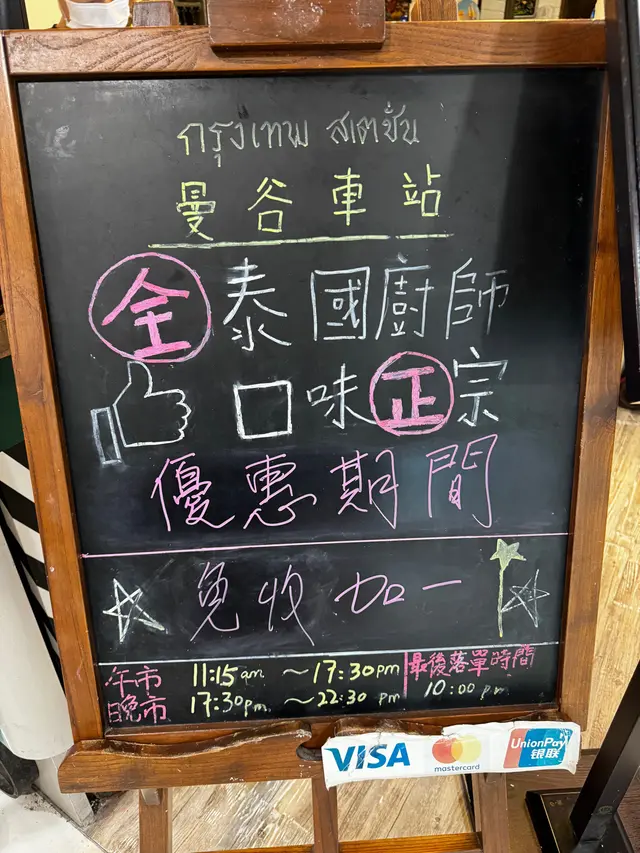 กรุงเทพ สเตชั่น
曼谷車站
全泰國廚師
口味正宗
優惠期間
免收加一
午市 11:15am ～17:30pm
晚市 17:30pm ～22:30 pm
最後落單時間
10:00 pm
VISA
mastercard
UnionPay
银联